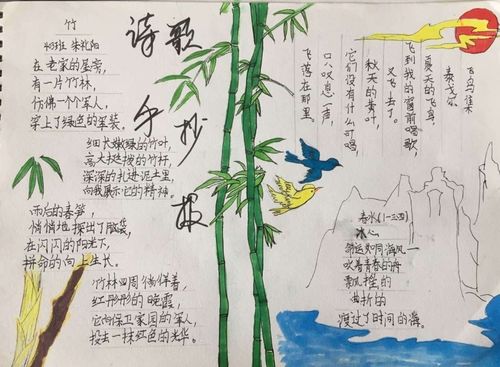 诗歌手抄报
竹
403班 朱礼阳
在老家的屋旁,
有一片竹林,
仿佛一个个军人,
穿上了绿色的军装。
细长嫩绿的竹叶,
高大挺拔的竹杆,
深深的扎进泥土里,
向我展示它的精神。
雨后的春笋,
悄悄地探出了脑袋,
在闪闪的阳光下,
拼命的向上生长。
竹林四周偎伴着,
红彤彤的晚霞,
它向保卫家园的军人,
投去一抹红色的光华。
飞鸟集
泰戈尔
夏天的飞鸟
飞到我的窗前唱歌
又飞去了。
秋天的黄叶
它们没有什么可唱
只叹息一声,
飞落在那里。
春水(一三四)
冰心
命运如同海风一
吹着青春的舟
飘摇的
曲折的
渡过了时间的海。